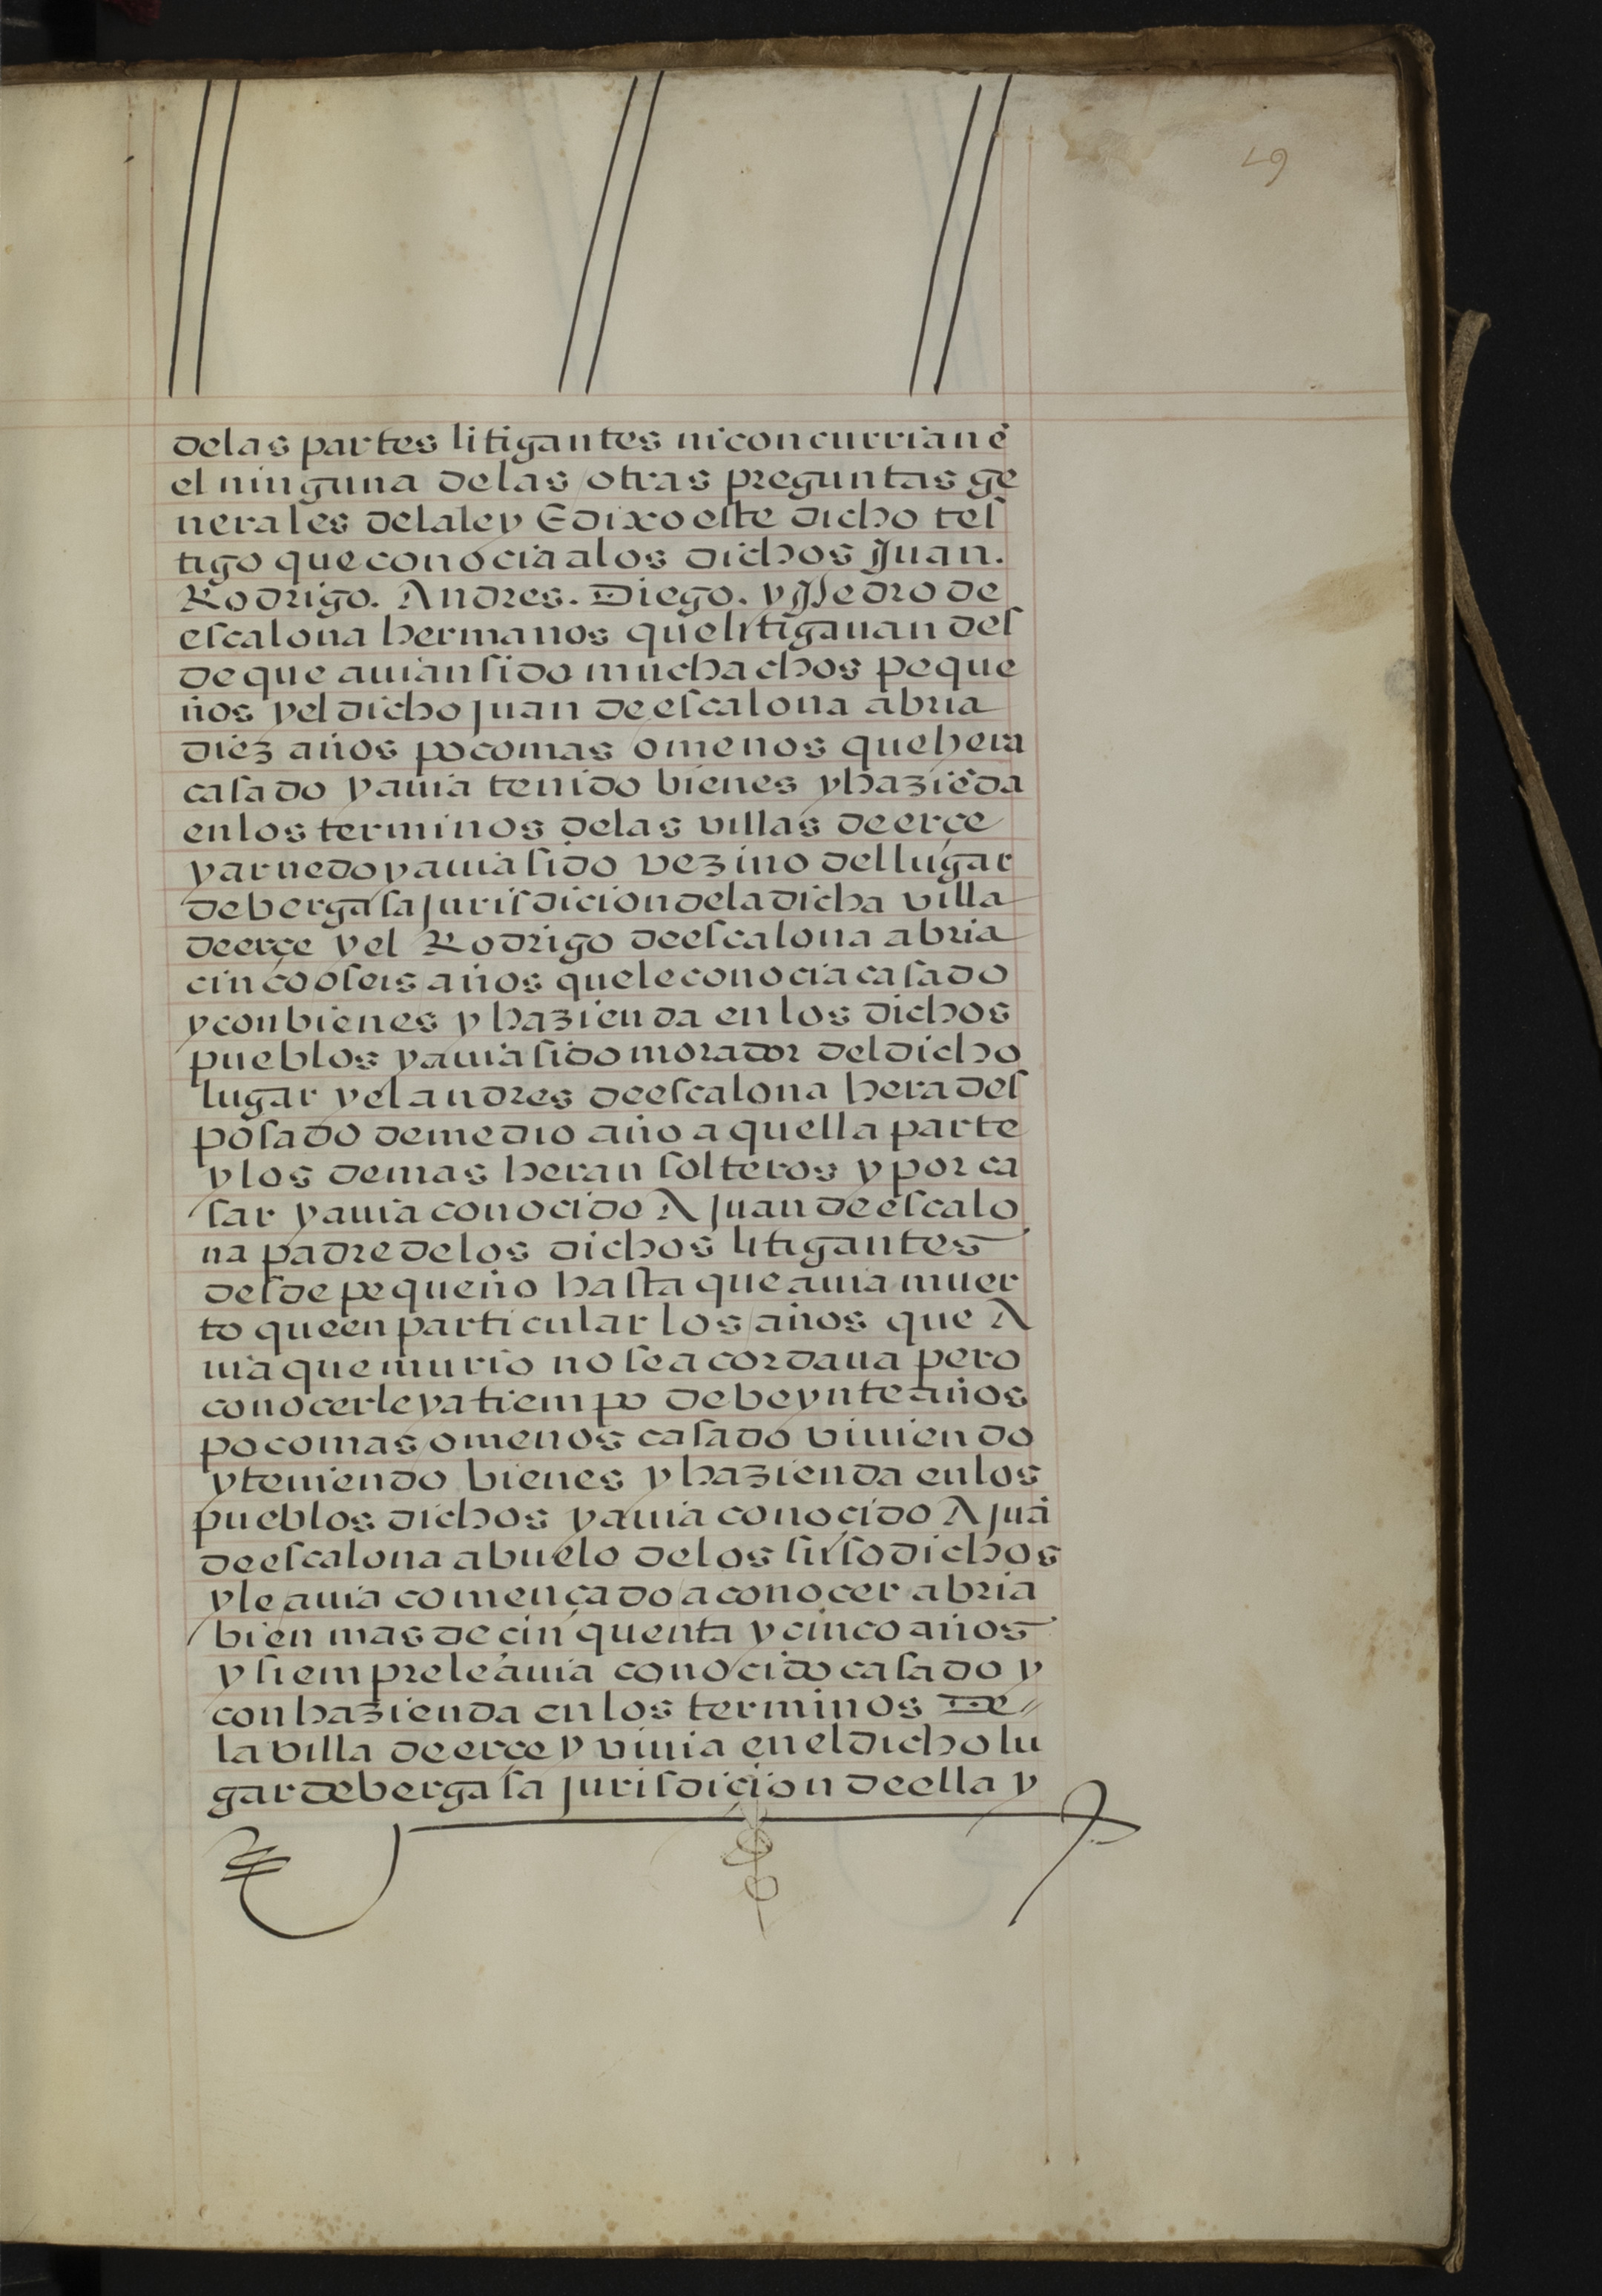 49
delas partes litigantes ni concurrian ē
el ninguna delas otras preguntas ge
nerales dela ley E dixo este dicho tes
tigo que conocia alos dichos Juan.
Rodrigo. Andres. Diego. y Pedro de
escalona hermanos que litigauan des
de que auian sido muchachos peque
ños y el dicho juan de escalona abria
diez años poco mas o menos que hera
casado y auia tenido bienes y haziēda
en los terminos delas villas de erçe
y arnedo y auia sido vezino del lugar
de bergasa jurisdicion dela dicha villa
de erçe y el Rodrigo de escalona abria
cinco o seis años que le conocia casado
y con bienes y hazienda en los dichos
pueblos y auia sido morador del dicho
lugar y el andres de escalona hera des
posado de medio año a quella parte
y los demas heran solteros y por ca
sar y auia conocido A juan de escalo
na padre de los dichos litigantes
desde pequeño hasta que auia muer
to que en particular los años que A
uia que murio no se acordaua pero
conocerle ya tiempo de beynte años
poco mas o menos casado viuiendo
y teniendo bienes y hazienda en los
pueblos dichos y auia conoçido A juā
de escalona abuelo de los susodichos
y le auia començado a conocer abria
bien mas de çinquenta y cinco años
y siempre le auia conocido casado y
con hazienda en los terminos De
la villa de erçe y viuia en el dicho lu
gar de bergasa jurisdiçion de ella y